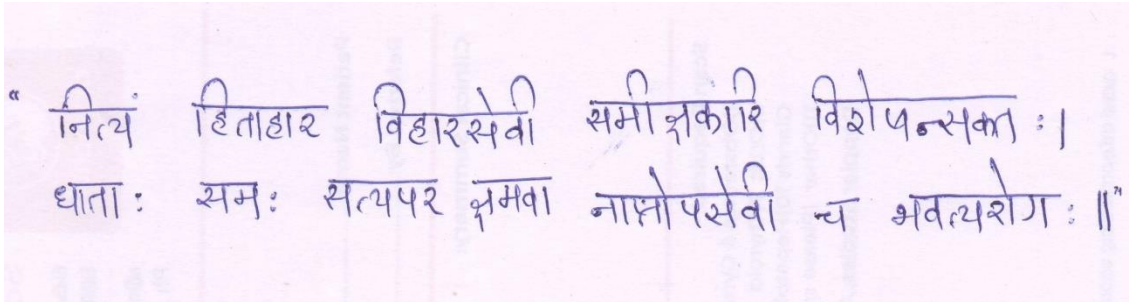 “ नित्यं हिताहार विहारसेवी समीक्षकारि विशेपन्सक्त : ।
धाता : सम : सत्यपर क्षमवा नाप्तोपसेवी च भवत्यरोग : ॥”